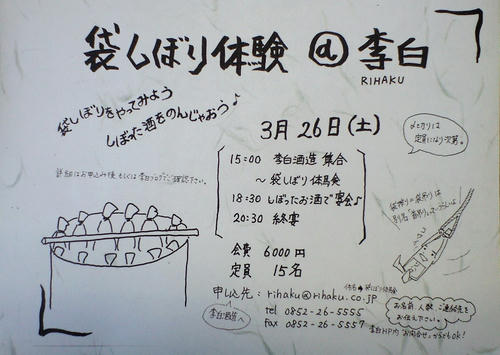 袋しぼり体験 @ 李白
RIHAKU
袋しぼりをやってみよう
しぼった酒をのんじゃおう♪
3月26日(土)
〆切りは
定員になり次第。
15:00 李白酒造 集合
〜袋しぼり体験
18:30 しぼったお酒で宴会♪
20:30 終宴
詳細はお申込み後、もしくは李白ブログでご確認下さい。
会費 6000円
定員 15名
件名→袋しぼり体験
申し込先: rihaku@rihaku.co.jp
李白酒造へ
tel 0852-26-5555
fax 0852-26-5557
お名前、人数、ご連絡先を
お伝え下さい。
李白HP内"お問合せ"からもOK!